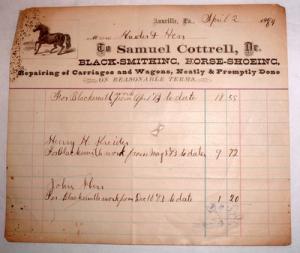 Annville, Pa., April 2 1894
M
To Samuel Cottrell, Dr.
BLACK-SMITHING, HORSE-SHOEING,
Repairing of Carriages and Wagons, Neatly & Promptly Done
ON REASONABLE TERMS.
For Blacksmith work from April to date 18 55
Henry H. Kreider
For Blacksmith work from to date 9 72
John Herr
For Blacksmith work from Dec to date 1 20